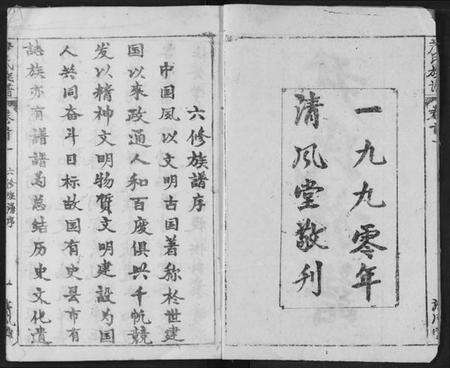 一九九零年
清风堂敬刊
六修族谱序
中国风以文明古国著称於世建
国以来政通人和百废俱兴千帆竞
发以精神文明物质文明建设为国
人共同奋斗目标故国有史县市有
誌族亦有谱谱为总结历史文化遗
六修族谱序